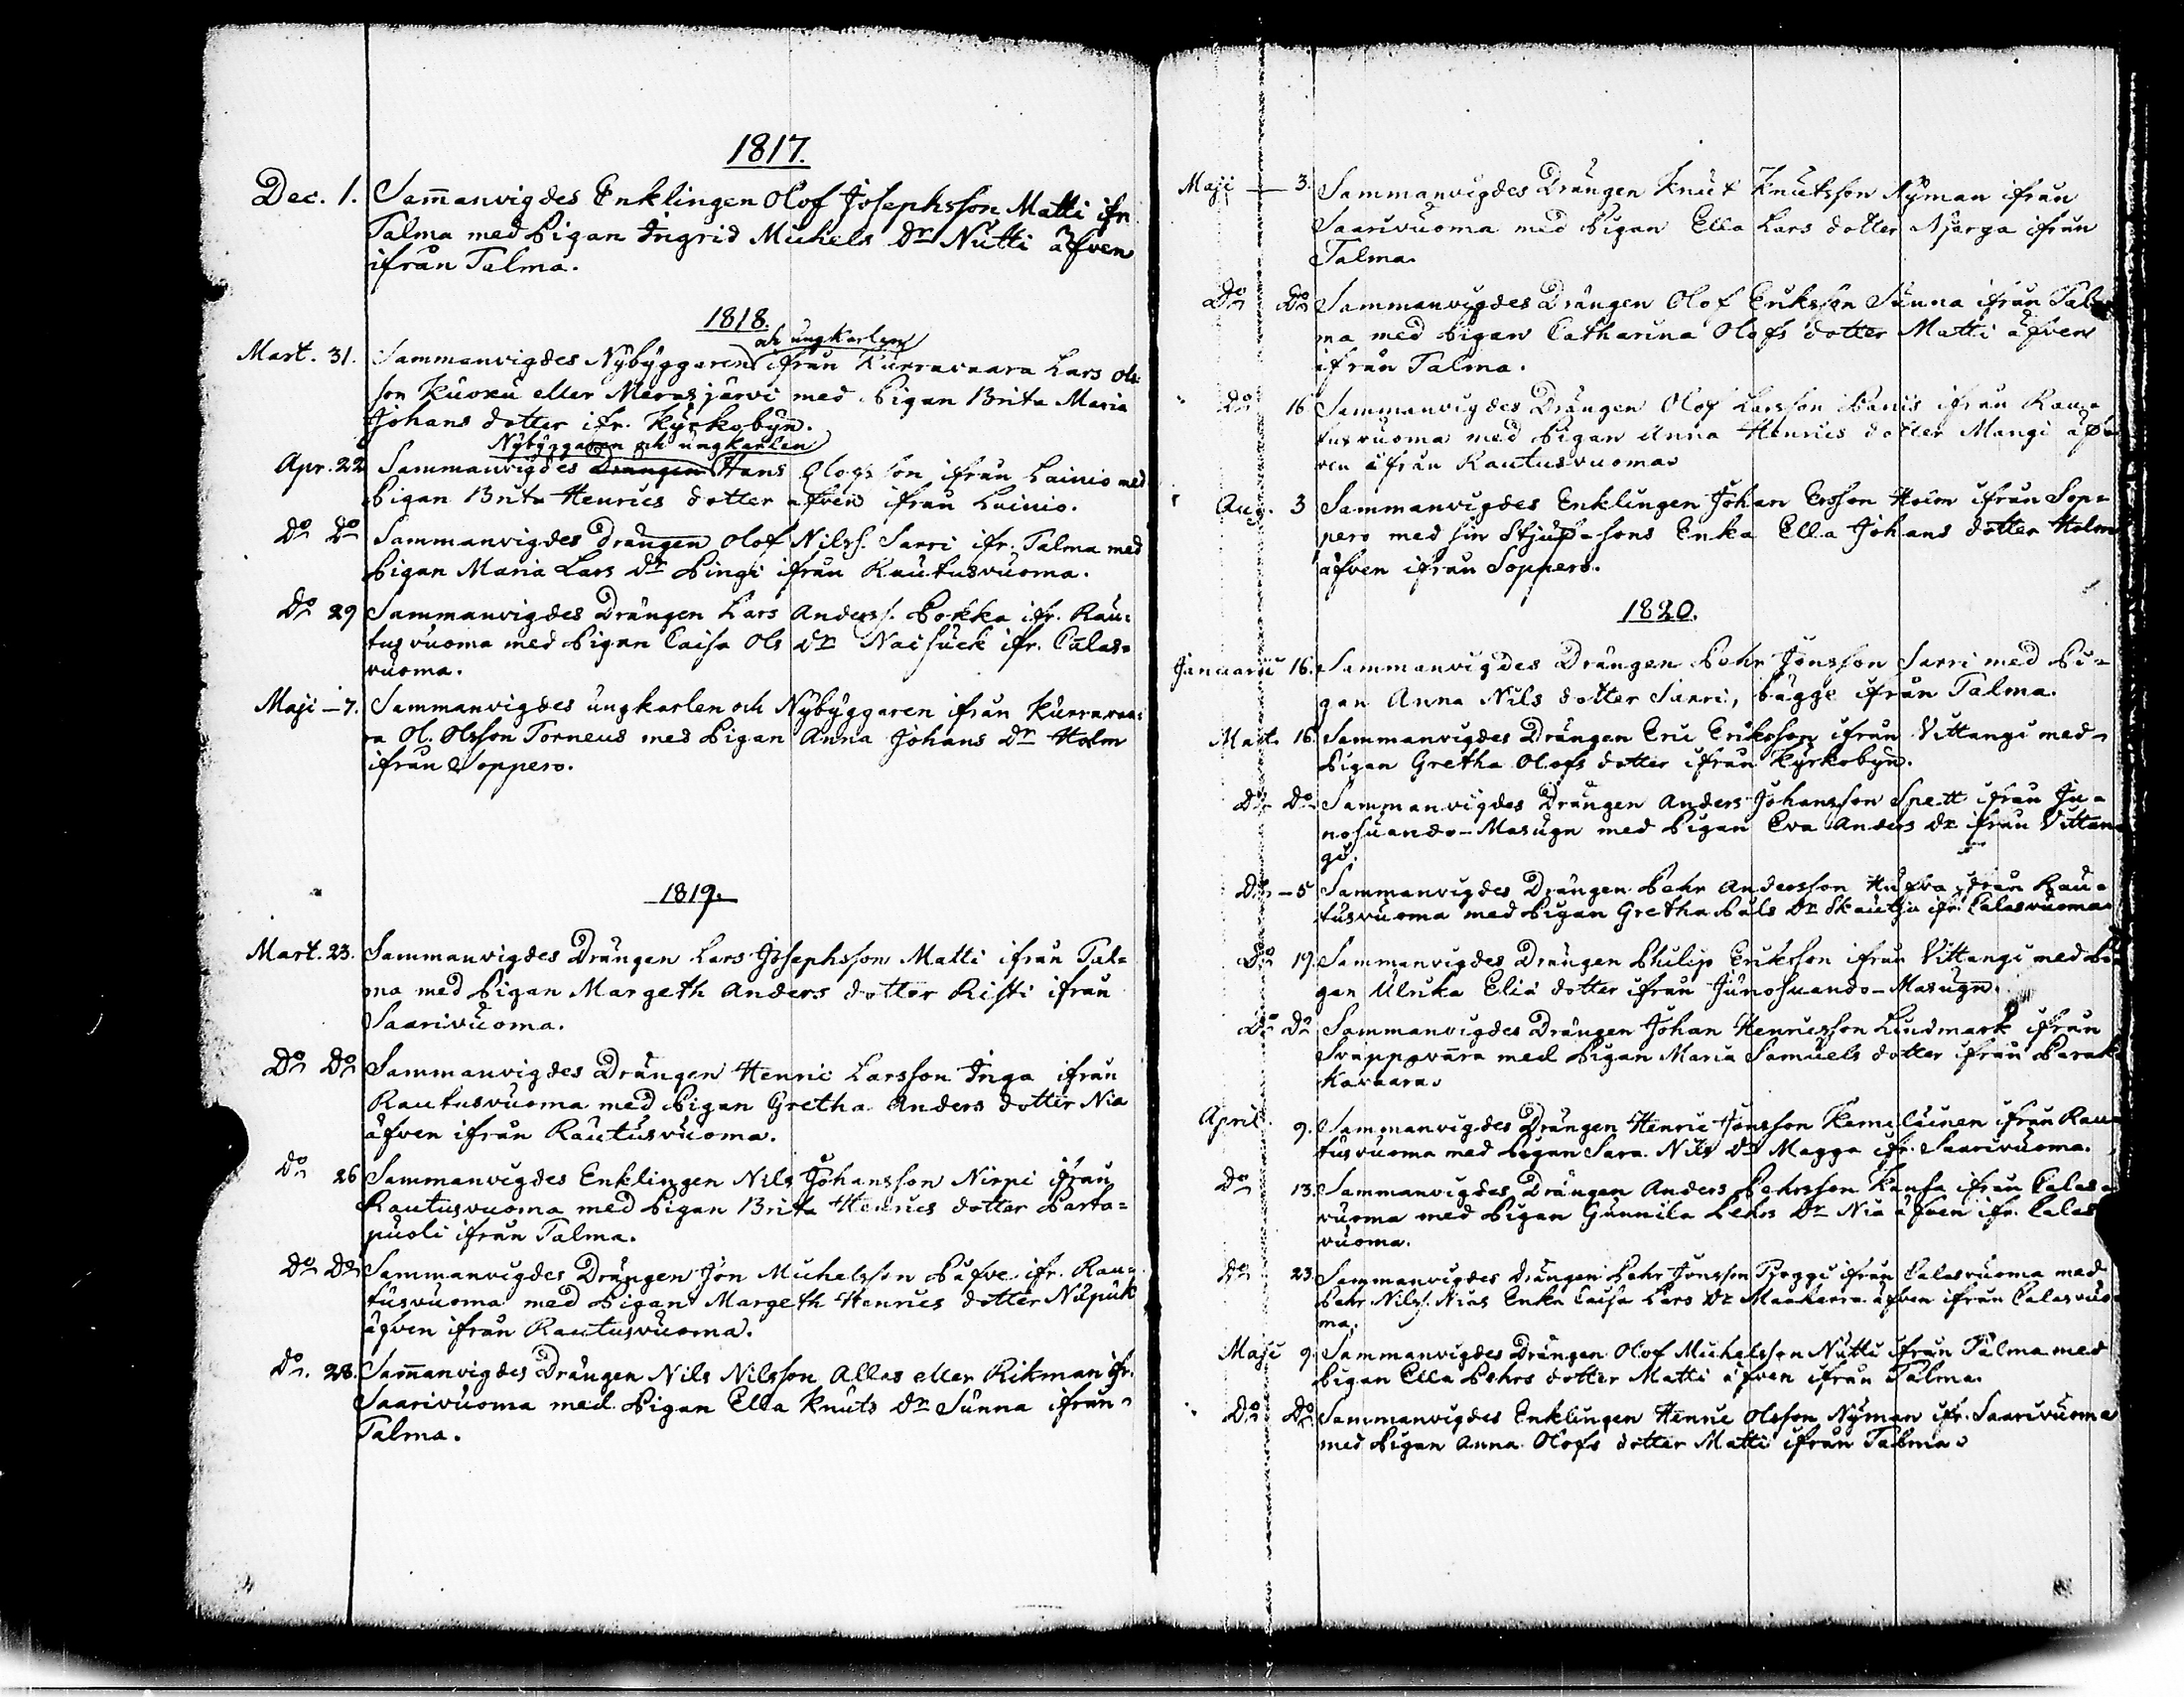 1817.
Dec. 1. Sam̄anvigdes Enklingen Olof Josephsson Matti ifr.
Talma med Pigan Ingrid Michels Dr Nutti äfven
ifrån Talma.
1818.
och ungkarlen
Mart. 31. Sammanvigdes Nybyggaren ifrån Kurravaara Lars Ols
son Kuoxu eller Merasjärvi med Pigan Brita Maria
Johans dotter ifr. Kyrkobyn.
Nybyggaren och ungkarlen
Apr. 22 Sammanvigdes Drängen Hans Olofsson ifrån Lainio med
Pigan Brita Henrics dotter äfven ifrån Lainio.
Do Do Sammanvigdes Drängen Olof Nilss. Sarri ifr. Talma med
Pigan Maria Lars Dr Pingi ifrån Rautusvuoma.
Do 29 Sammanvigdes Drängen Lars Anderss. Pokka ifr. Rau=
tusvuoma med Pigan Caisa Ols Dr Naisuck ifr. Calas=
vuoma.
Maji - 7. Sammanvigdes ungkarlen och Nybyggaren ifrån Kurravaa=
ra Ol. Olsson Torneus med Pigan Anna Johans Dr Holm
ifrån Soppero.
1819.
Mart. 23. Sammanvigdes Drängen Lars Josephsson Matti ifrån Tal=
ma med Pigan Margeth Anders dotter Risti ifrån
Saarivuoma.
Do Do Sammanvigdes Drängen Henric Larsson Inga ifrån
Rautusvuoma med Pigan Gretha Anders dotter Nia
äfven ifrån Rautusvuoma.
Do 26 Sammanvigdes Enklingen Nils Johansson Nirpi ifrån
Rautusvuoma med Pigan Brita Henrics dotter Parta=
puoli ifrån Talma.
Do Do Sammanvigdes Drängen Jon Michelsson Påfve ifr. Rau=
tusvuoma med Pigan Margeth Henrics dotter Nilpuk
äfven ifrån Rautusvuoma.
Do. 28. Sam̄anvigdes Drängen Nils Nilsson Allas eller Rikman ifr.
Saarivuoma med Pigan Ella Knuts Dr Sunna ifrån
Talma.
Maji - 3. Sammanvigdes Drängen Knut Knutsson Nyman ifrån
Saarivuoma med Pigan Ella Lars dotter Njarga ifrån
Talma.
Do Do Sammanvigdes Drängen Olof Eriksson Sunna ifrån Tal
ma med Pigan Catharina Olofs dotter Matti äfven
ifrån Talma.
Do 16 Sammanvigdes Drängen Olof Larsson Panis ifrån Rau=
tusvuoma med Pigan Anna Henrics dotter Mangi äf=
ven ifrån Rautusvuoma
Aug. 3 Sammanvigdes Enklingen Johan Ersson Holm ifrån Sop=
pero med sin Stjuf-sons Enka Ella Johans dotter Holm
äfven ifrån Soppero.
1820.
Januarii 16. Sammanvigdes Drängen Pehr Jonsson Sarri med Pi=
gan Anna Nils dotter Sarri, bägge ifrån Talma.
Mart. 16. Sammanvigdes Drängen Eric Eriksson ifrån Vittangi med
Pigan Gretha Olofs dotter ifrån Kyrkobyn.
Do Do Sammanvigdes Drängen Anders Johansson Spett ifrån Ju=
nosuando-Masugn med Pigan Eva Anders Dr ifrån Vittan
gi.
Do - 5 Sammanvigdes Drängen Pehr Andersson Hufva ifrån Rau=
tusvuoma med Pigan Gretha Påls Dr Skautja ifr. Calasvuoma
Do 19. Sammanvigdes Drängen Philip Eriksson ifrån Vittangi med Pi
gan Ulrika Eliæ dotter ifrån Junosuando-Masugn.
Do Do Sammanvigdes Drängen Johan Henricsson Lindmark ifrån
Svappavara med Pigan Maria Samuels dotter ifrån Parak
kavaara
April 9. Sammanvigdes Drängen Henric Jonsson Kemiläinen ifrån Rau=
tusvuoma med Pigan Sara Nils Dr Magga ifr. Saarivuoma.
Do 13. Sammanvigdes Drängen Anders Pehrsson Kanfa ifrån Calas=
vuoma med Pigan Gunnila Pehrs Dr Nia äfven ifr. Calas
vuoma.
Do 23. Sammanvigdes Drängen Pehr Jonsson ifrån Calasvuoma med
Pehr Nilss. Nias Enka Caisa Lars Dr äfven ifrån Calasvuo
ma.
Maji 9. Sammanvigdes Drängen Olof Michelsson Nutti ifrån Talma med
Pigan Ella Pehrs dotter Matti äfven ifrån Talma.
Do Do Sammanvigdes Enklingen Henric Olsson Nyman ifr. Saarivuoma
med Pigan Anna Olofs dotter Matti ifrån Talma